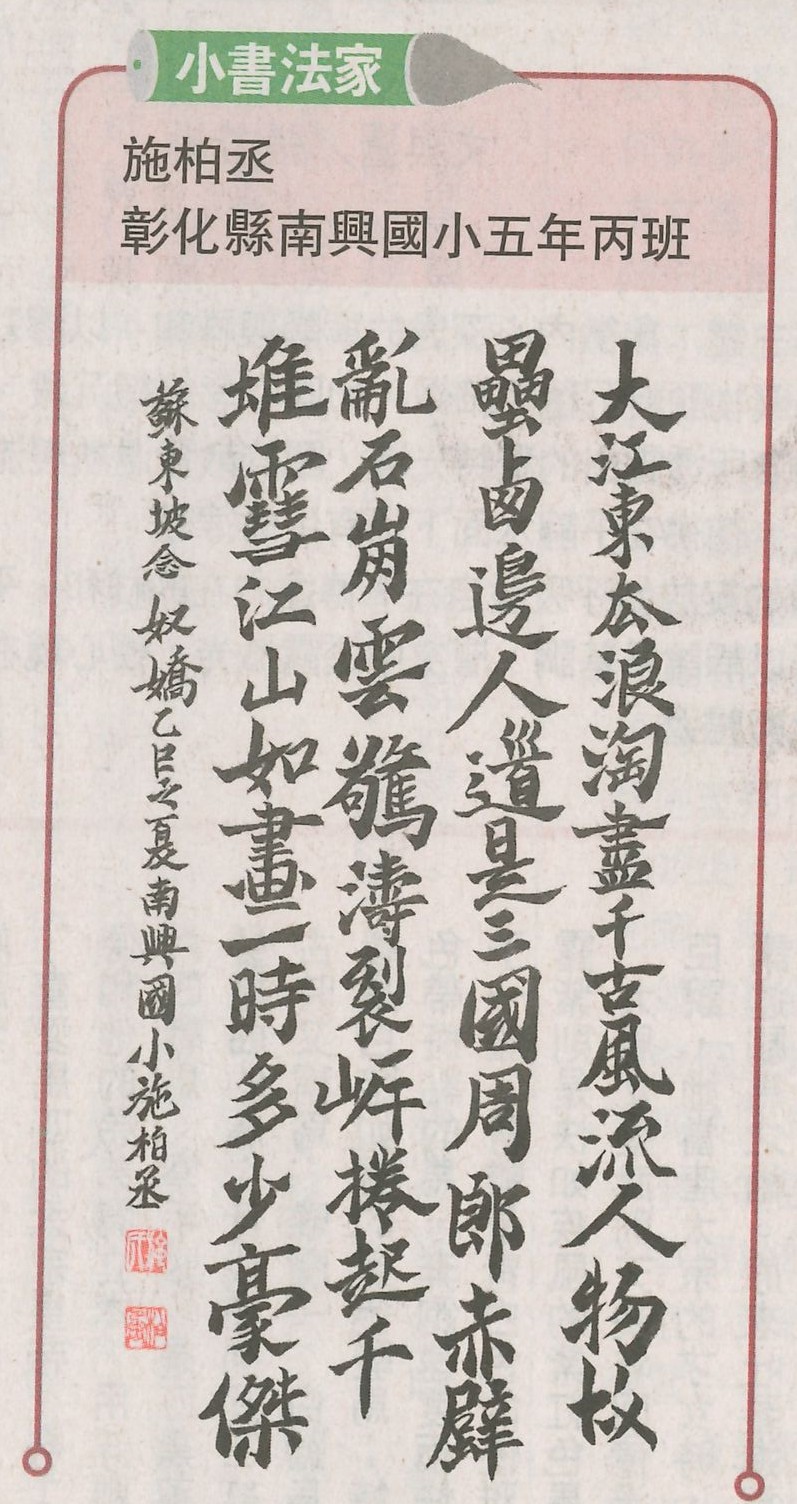 小書法家
施柏丞
彰化縣南興國小五年丙班
大江東去浪淘盡千古風流人物故
壘西邊人道是三國周郎赤壁
亂石崩雲驚濤裂岸捲起千
堆雪江山如畫一時多少豪傑
蘇東坡念奴嬌乙巳之夏南興國小施柏丞